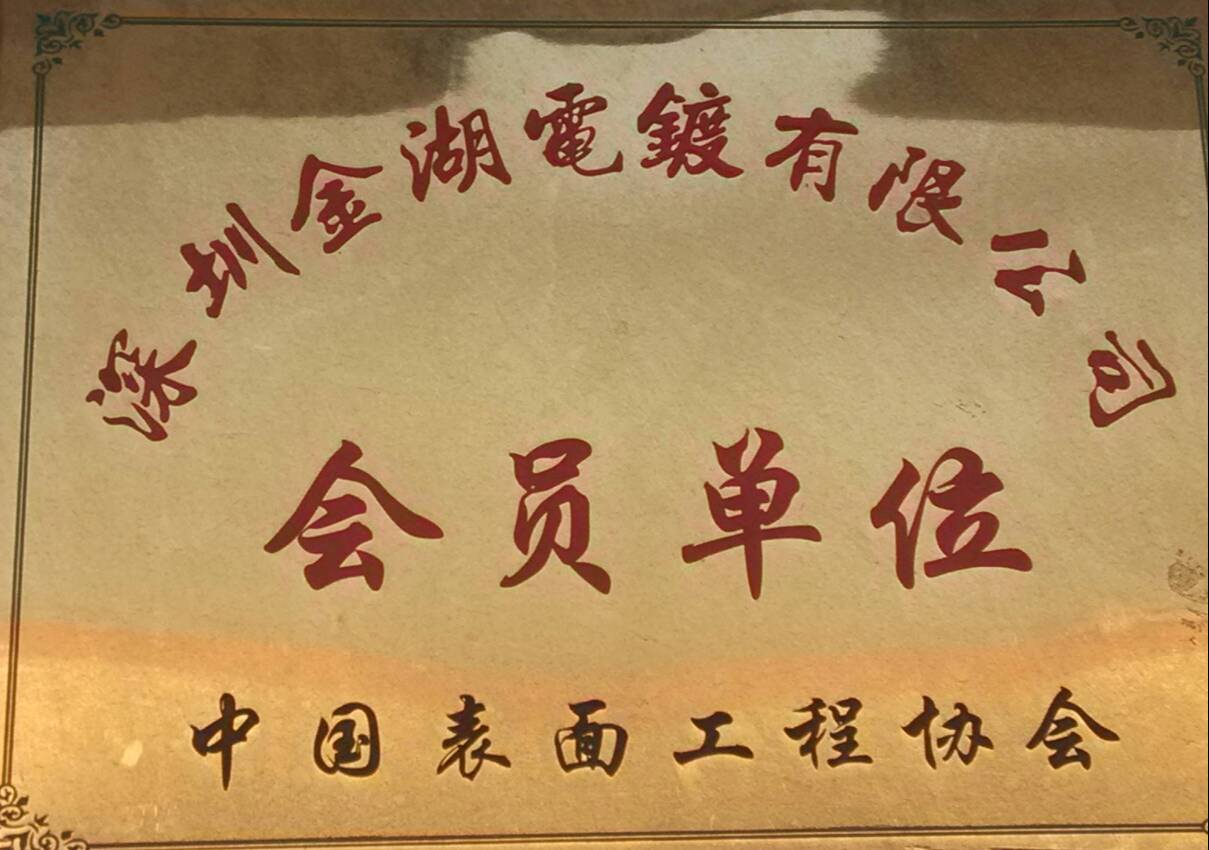 深圳金湖電鍍有限公司
会员单位
中国表面工程协会